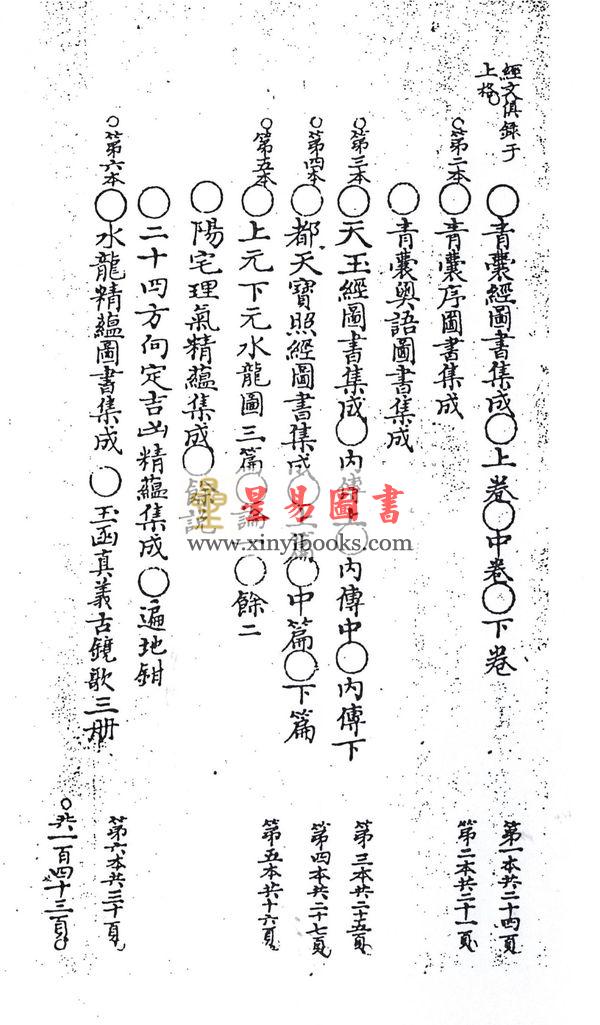 經文俱録于
上格
○青囊經圖書集成○上卷○中卷○下卷
第一本共二十四頁
○第二本
○青囊序圖書集成
第二本共二十一頁
○青囊奧語圖書集成
○第三本
○天玉經圖書集成○內傳上○內傳中○內傳下
第三本共二十五頁
○第四本
○都天寶照經圖書集成○上篇○中篇○下篇
第四本共二十七頁
○第五本
○上元下元水龍圖三篇○論一○餘二
第五本共十六頁
○陽宅理氣精蘊集成○餘記
○二十四方向定吉凶精蘊集成○遍地鉗
○第六本
○水龍精蘊圖書集成○玉函真義古鏡歌三册
第六本共三十頁
○共一百四十三頁
星易圖書
www.xinyibooks.com